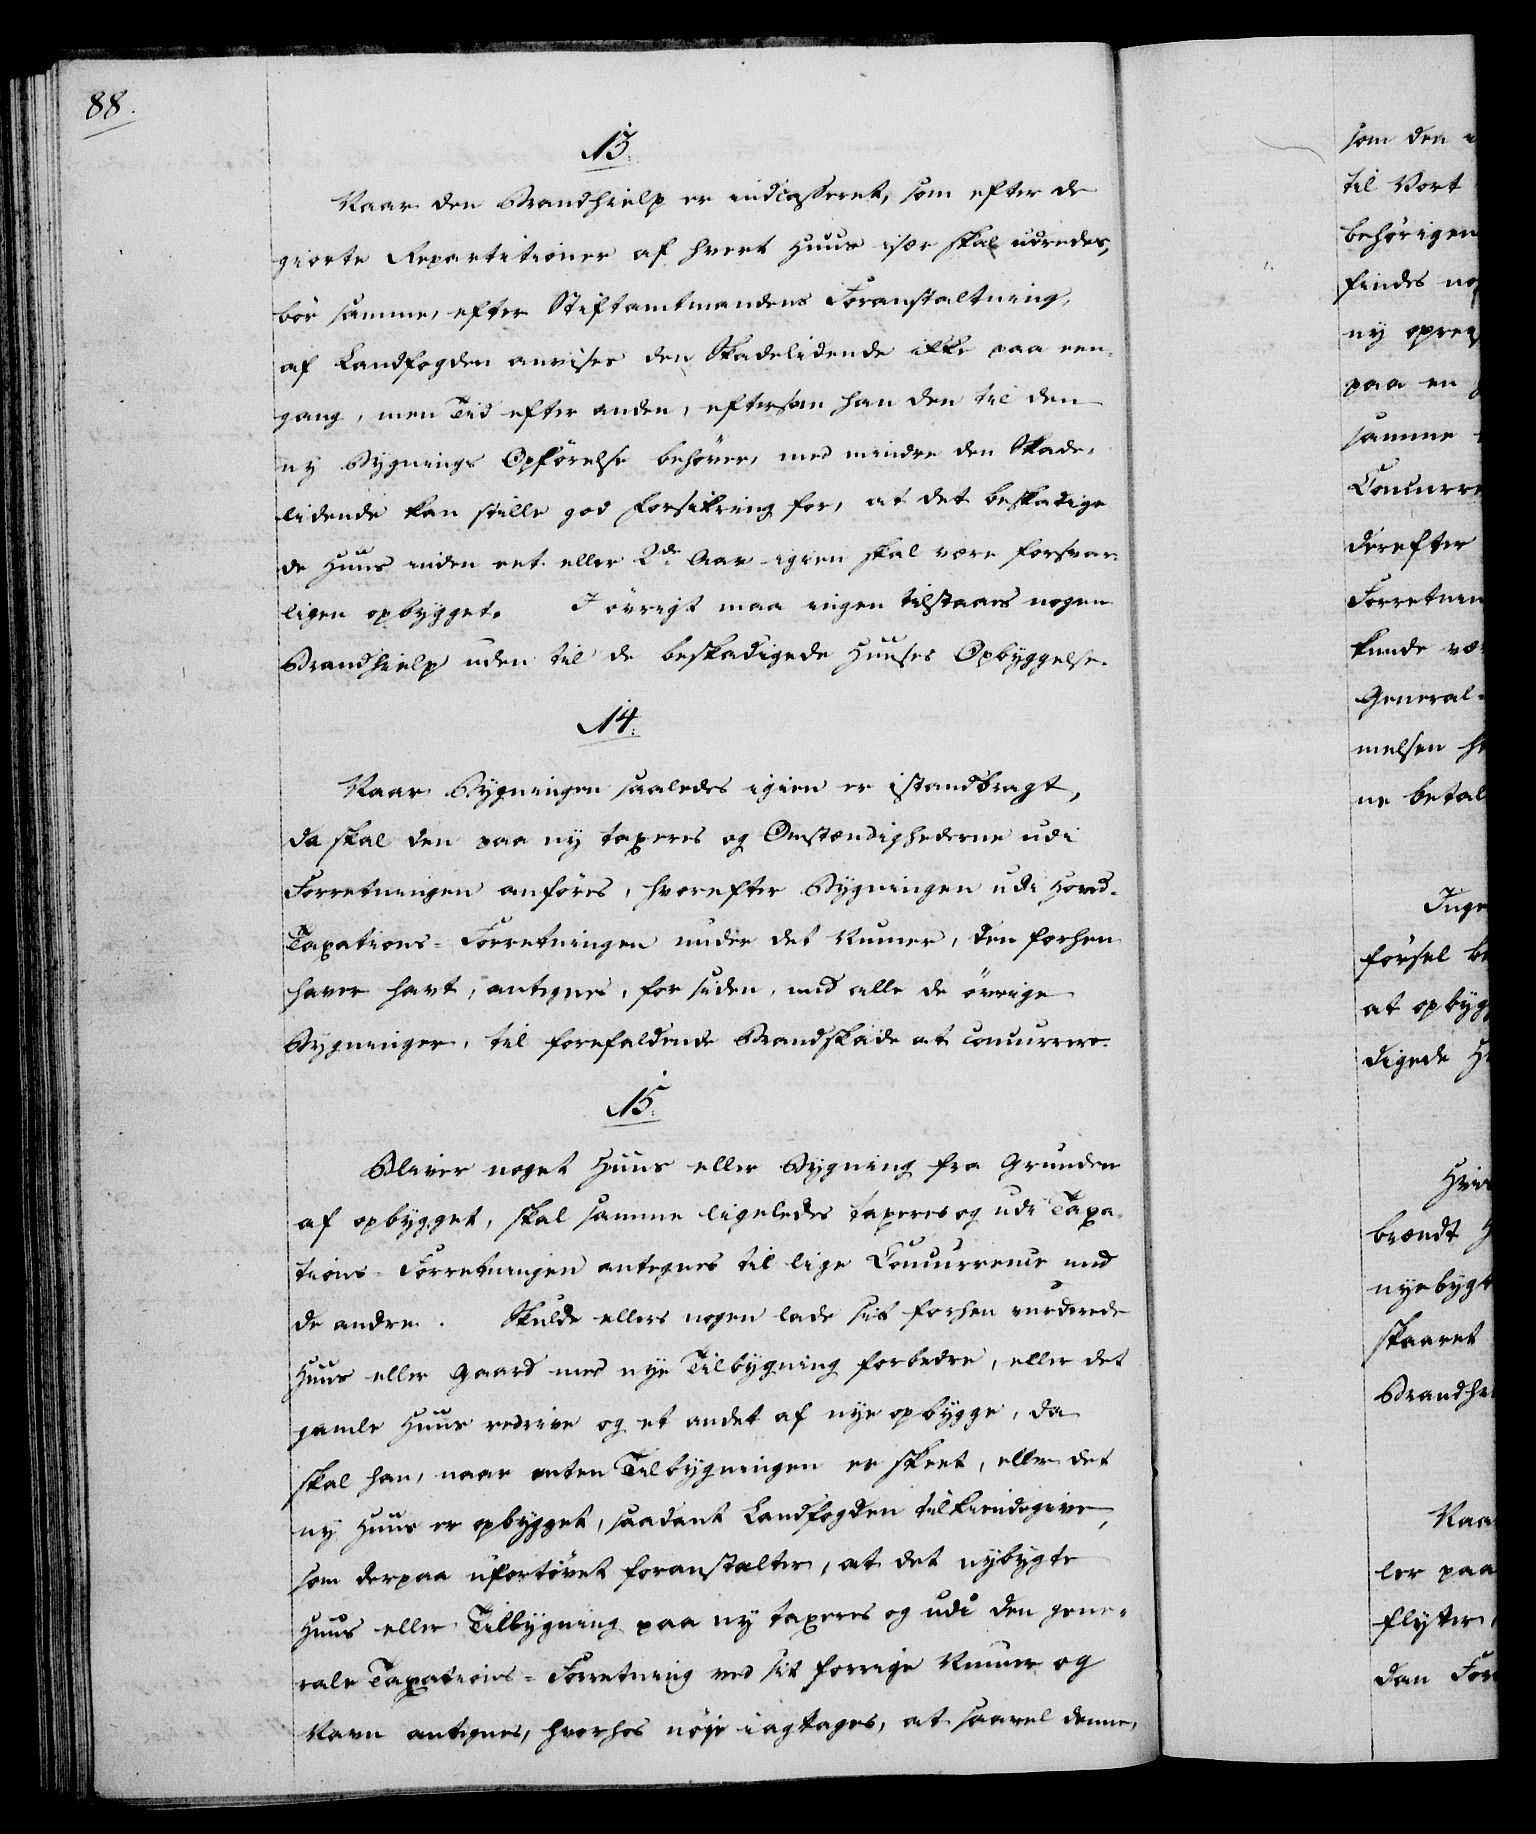 88.
13.
Naar den Brandhielp er indcasseret, som efter de
giorte Repartitioner af hvert Huus især skal udredes,
bör samme, efter Stiftamtmandens Foranstaltning,
af Landfogden anvises den Skadelidende ikke paa een-
gang, men Tid efter anden, eftersom han den til den
ny Bygnings Opförelse behöver, med mindre den Skade-
lidende kan stille god Forsikring for, at det beskadige
de Huus inden eet eller 2de Aar igien skal være forsvar-
ligen opbygget. I övrigt maa ingen tilstaaes nogen
Brandhielp uden til de beskadigede Huuses Opbyggelse.
14.
Naar Bygningen saaledes igien er istandbragt,
da skal den paa ny taxeres og Omstændighederne udi
Forretningen anföres, hvorefter Bygningen udi Hoved-
Taxations-Forretningen under det Numer, den forhen
haver havt, antegnes, for siden, med alle de övrige
Bygninger, til forefaldende Brandskade at concurrere.
15.
Bliver noget Huus eller Bygning fra Grunden
af opbygget, skal samme ligeledes taxeres og udi Taxa-
tions-Forretningen antegnes til lige Concurrence med
de andre. Skulde ellers nogen lade sit forhen vurderede
Huus eller Gaard med nye Tilbygning forbedre, eller det
gamle Huus nedrive og et andet af nye opbygge, da
skal han, naar enten Tilbygningen er skeet, eller det
ny Huus er opbygget, saadant Landfogden tilkiendegive,
som derpaa ufortövet foranstalter, at det nybygte
Huus eller Tilbygning paa ny taxeres og udi den gene-
rale Taxations-Forretning ved sit forrige Numer og
Navn antegnes, hvorhos nöje iagtages, at saavel denne,
som den
til Vort
behörigen
findes
ny
paa en
samme
derefter
kunde
General-
melsen
ne
försel
at
digede
brændt
nyebygt
skaaret
ler paa
flyter
dan